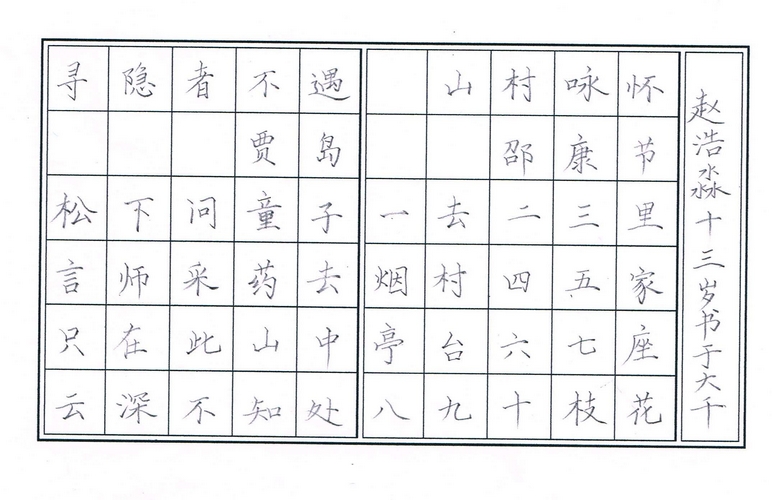 寻隐者不遇
贾岛
松下问童子
言师采药去
只在此山中
云深不知处
山村咏怀
邵康节
一去二三里
烟村四五家
亭台六七座
八九十枝花
赵浩淼十三岁书于大千